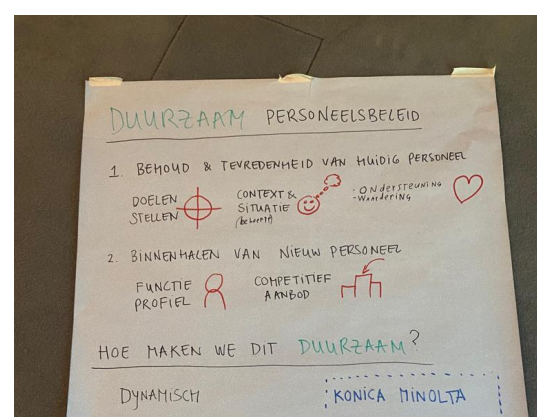 DUURZAAM PERSONEELSBELEID
1. BEHOUD & TEVREDENHEID VAN HUIDIG PERSONEEL
DOELEN
STELLEN
CONTEXT &
SITUATIE
- ONDERSTEUNING
- WAARDERING
2. BINNENHALEN VAN NIEUW PERSONEEL
FUNCTIE
PROFIEL
COMPETITIEF
AANBOD
HOE MAKEN WE DIT DUURZAAM?
DYNAMISCH
KONICA MINOLTA